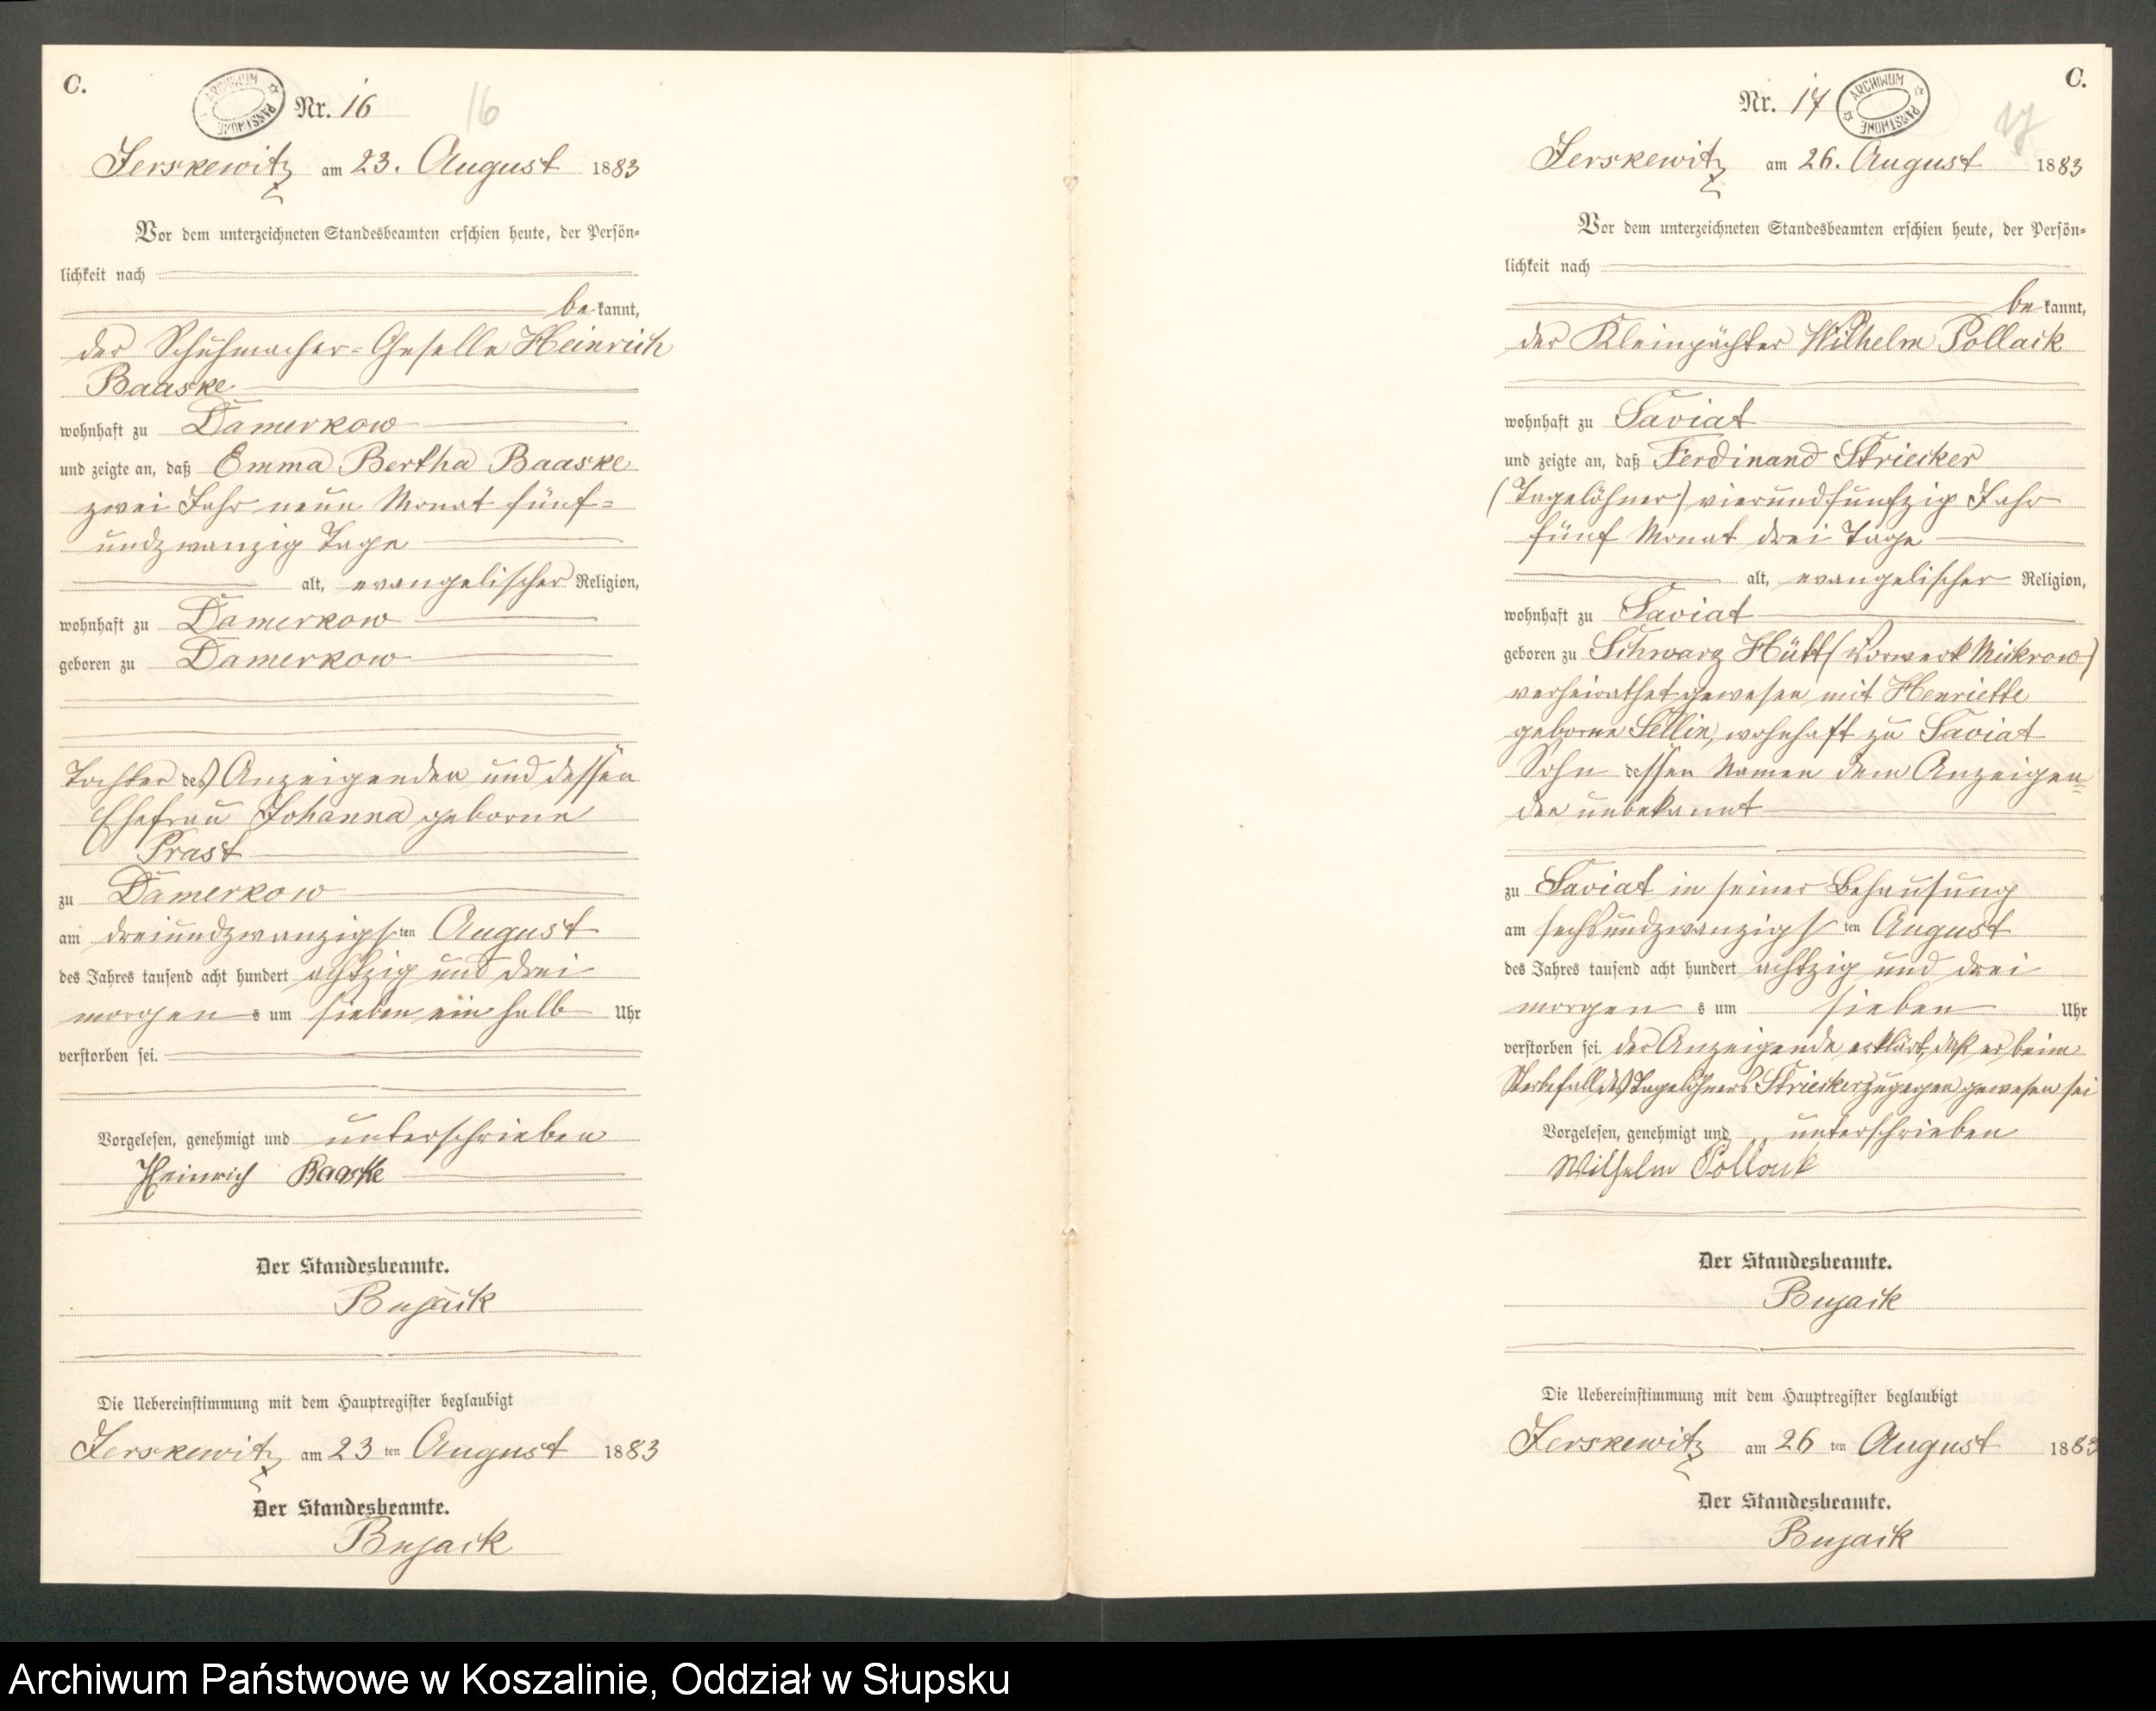 C.
ARCHIWUM PAŃSTWOWE
Nr. 16
16
Jerskewitz am 23. August 1883
Vor dem unterzeichneten Standesbeamten erschien heute, der Persön=
lichkeit nach
be kannt,
der Schuhmacher=Geselle Heinrich
Baaske
wohnhaft zu Damerkow
und zeigte an, daß Emma Bertha Baaske
zwei Jahr neun Monat fünf=
undzwanzig Tage
alt, evangelischer Religion,
wohnhaft zu Damerkow
geboren zu Damerkow
Tochter des Anzeigenden und dessen
Ehefrau Johanna geborne
Prast
zu Damerkow
am dreiundzwanzigsten August
des Jahres tausend acht hundert achtzig und drei
morgens um sieben ein halb Uhr
verstorben sei.
Vorgelesen, genehmigt und unterschrieben
Heinrich Baaske
Der Standesbeamte.
Bujack
Die Uebereinstimmung mit dem Hauptregister beglaubigt
Jerskewitz am 23 ten August 1883
Der Standesbeamte.
Bujack
C.
Nr. 17
ARCHIWUM PAŃSTWOWE
17
Jerskewitz am 26. August 1883
Vor dem unterzeichneten Standesbeamten erschien heute, der Persön=
lichkeit nach
be kannt,
der Kleinpächter Wilhelm Pollack
wohnhaft zu Saviat
und zeigte an, daß Ferdinand Striecker
(Tagelöhner) vierundfunfzig Jahr
fünf Monat drei Tage
alt, evangelischer Religion,
wohnhaft zu Saviat
geboren zu Schwarz Hütt (Vorwerk Mickrow)
verheirathet gewesen mit Henriette
geborne Sellin, wohnhaft zu Saviat
Sohn dessen Namen dem Anzeigen=
den unbekannt
zu Saviat in seiner Behausung
am sechsundzwanzigsten August
des Jahres tausend acht hundert achtzig und drei
morgens um sieben Uhr
verstorben sei. der Anzeigende erklärt, daß er beim
Sterbefall des Tagelöhners Striecker zugegen gewesen sei
Vorgelesen, genehmigt und unterschrieben
Wilhelm Pollack
Der Standesbeamte.
Bujack
Die Uebereinstimmung mit dem Hauptregister beglaubigt
Jerskewitz am 26 ten August 1883
Der Standesbeamte.
Bujack
Archiwum Państwowe w Koszalinie, Oddział w Słupsku